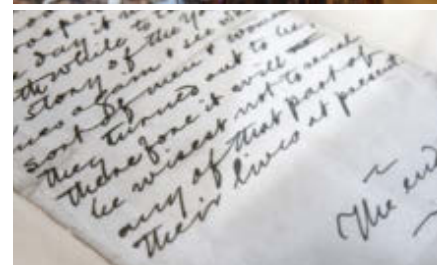 prosper
day it
th while to
story of the yo
nes again & see wh
sort of men & women
they turned out to be
therefore it will
be wisest not to reveal
any of that part of
their lives at present
The end